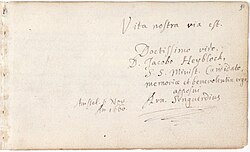 Vita nostra via est.
Doctissimo viro,
D. Jacobo Heyblock,
S. S. Minist. Candidato
memoriæ et benevolentiæ ergo
apposui
Arn. Senguerdius
Amstel. 6 Nov.
Aº 1660.